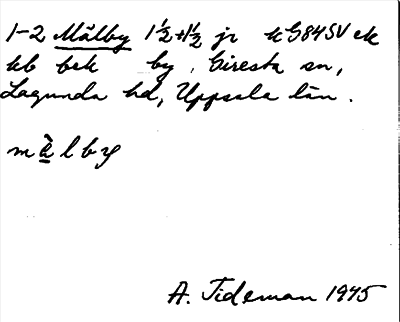 1-2 Målby 1½+1½ jr kG84SV ek
kb bek by, Giresta sn,
Lagunda hd, Uppsala län.
m l b y
A. Tideman 1945